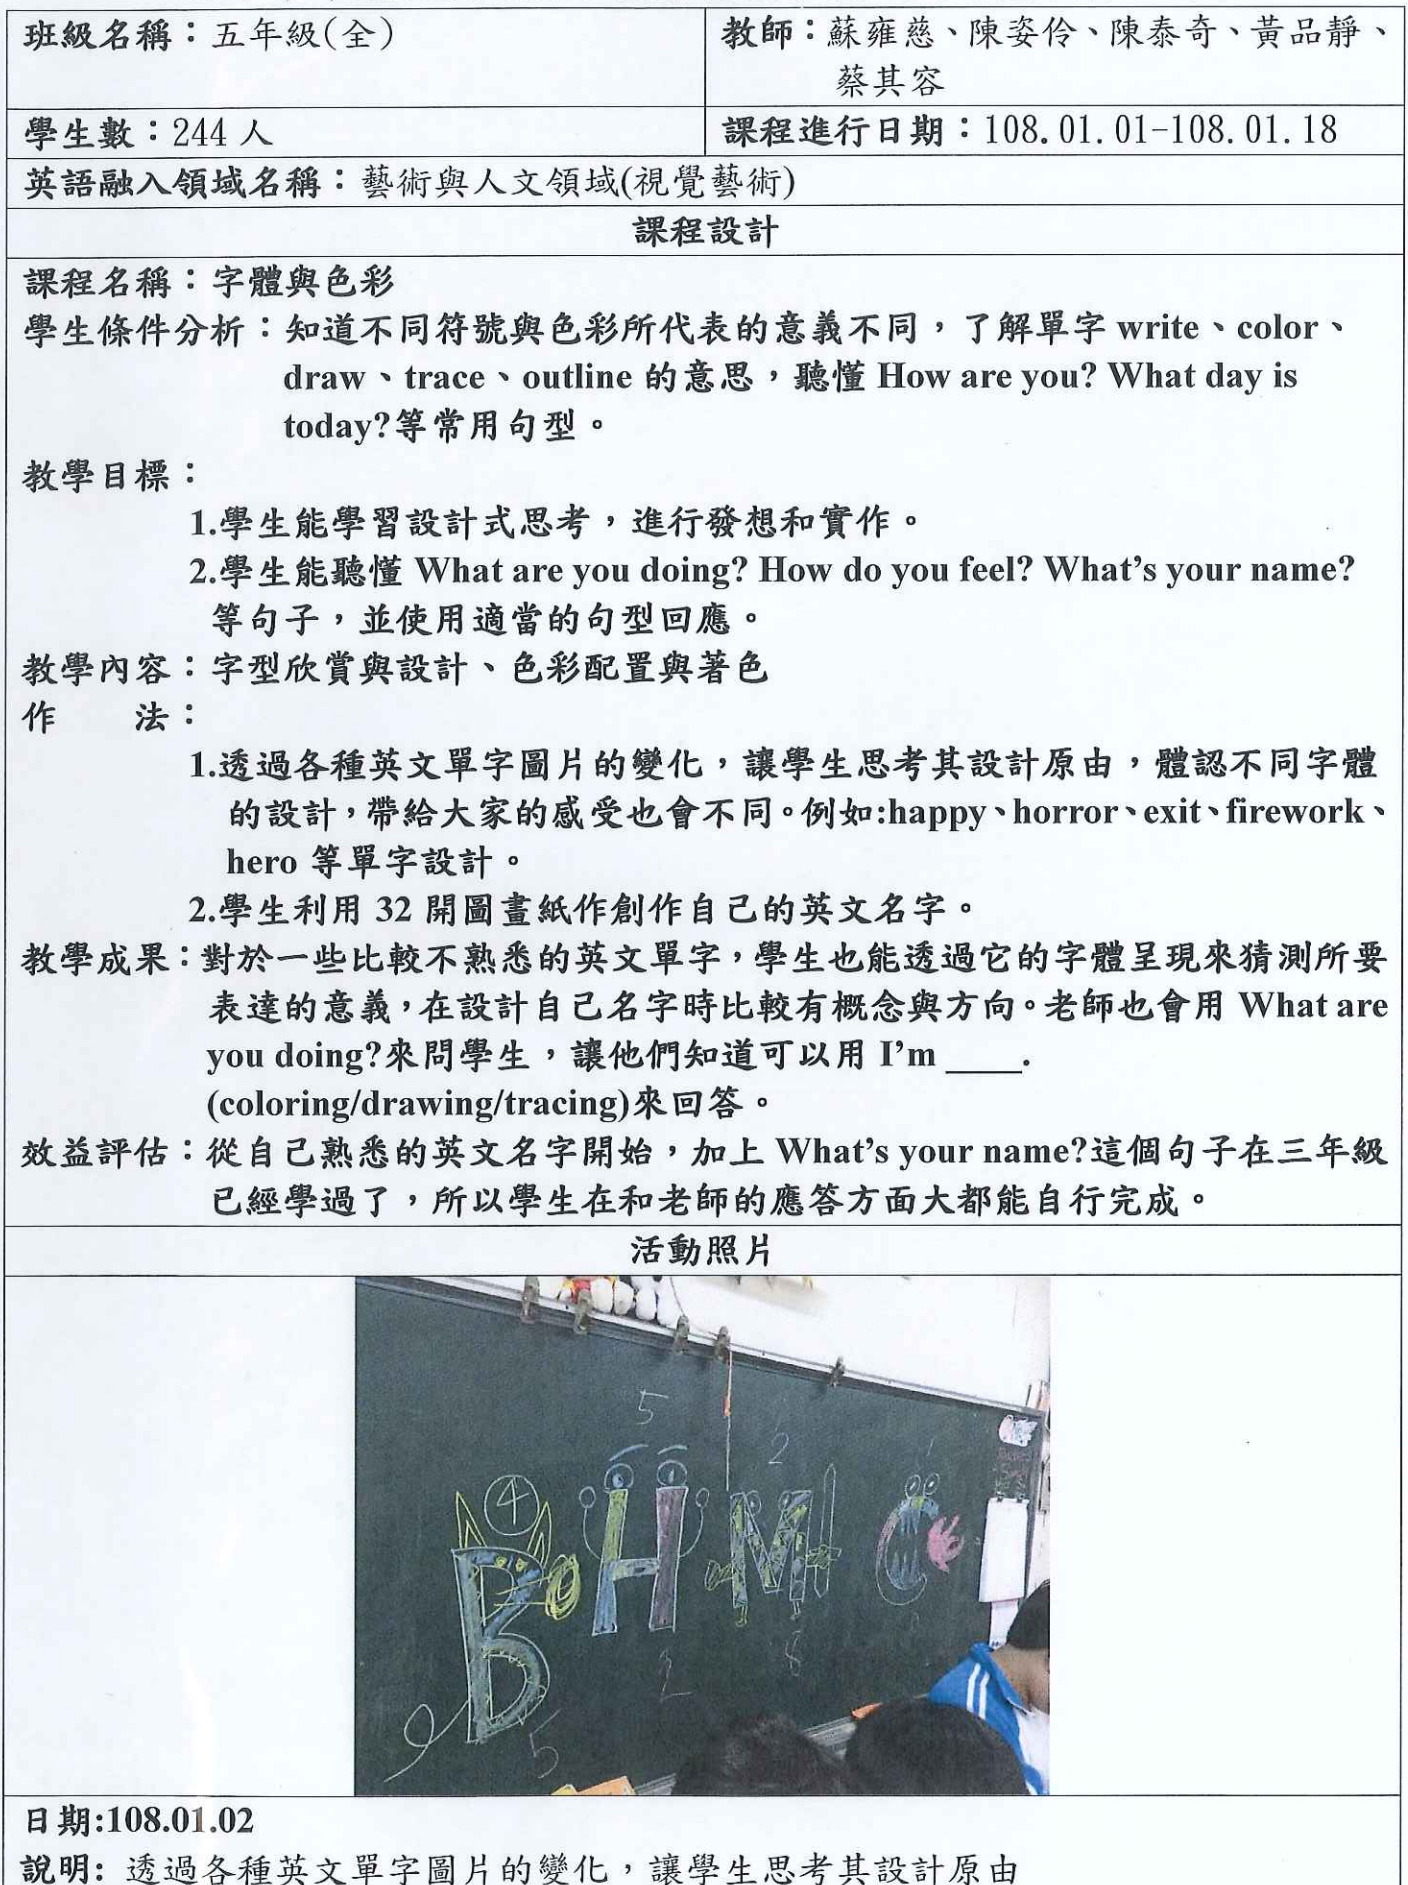 班級名稱：五年級(全)
教師：蘇雍慈、陳姿伶、陳泰奇、黃品靜、
蔡其容
學生數：244 人
課程進行日期：108.01.01-108.01.18
英語融入領域名稱：藝術與人文領域(視覺藝術)
課程設計
課程名稱：字體與色彩
學生條件分析：知道不同符號與色彩所代表的意義不同，了解單字 write、color、
draw、trace、outline 的意思，聽懂 How are you? What day is
today?等常用句型。
教學目標：
1.學生能學習設計式思考，進行發想和實作。
2.學生能聽懂 What are you doing? How do you feel? What’s your name?
等句子，並使用適當的句型回應。
教學內容：字型欣賞與設計、色彩配置與著色
作　　法：
1.透過各種英文單字圖片的變化，讓學生思考其設計原由，體認不同字體
的設計，帶給大家的感受也會不同。例如:happy、horror、exit、firework、
hero 等單字設計。
2.學生利用 32 開圖畫紙作創作自己的英文名字。
教學成果：對於一些比較不熟悉的英文單字，學生也能透過它的字體呈現來猜測所要
表達的意義，在設計自己名字時比較有概念與方向。老師也會用 What are
you doing?來問學生，讓他們知道可以用 I’m ____.
(coloring/drawing/tracing)來回答。
效益評估：從自己熟悉的英文名字開始，加上 What’s your name?這個句子在三年級
已經學過了，所以學生在和老師的應答方面大都能自行完成。
活動照片
5
2
4
B H M C
2
8
5
日期:108.01.02
說明: 透過各種英文單字圖片的變化，讓學生思考其設計原由